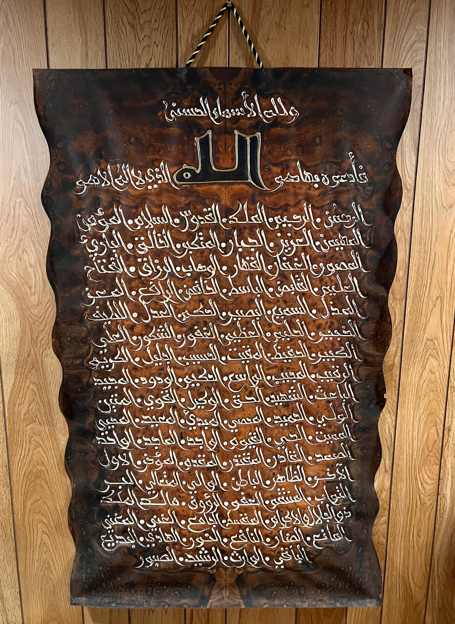 ولله الأسماء الحسنى
الله
فأدعوه بها هو الذي لا إله إلا هو
الرحمن الرحيم الملك القدوس السلام المؤمن
المهيمن العزيز الجبار المتكبر الخالق البارئ
المصور الغفار القهار الوهاب الرزاق الفتاح
العليم القابض الباسط الخافض الرافع المعز
المذل السميع البصير الحكم العدل اللطيف
الخبير الحليم العظيم الغفور الشكور العلي
الكبير الحفيظ المقيت الحسيب الجليل الكريم
الرقيب المجيب الواسع الحكيم الودود المجيد
الباعث الشهيد الحق الوكيل القوي المتين
الولي الحميد المحصي المبدئ المعيد المحيي
المميت الحي القيوم الواجد الماجد الواحد
الصمد القادر المقتدر المقدم المؤخر الأول
الآخر الظاهر الباطن الوالي المتعالي البر
التواب المنتقم العفو الرؤوف مالك الملك
ذو الجلال والإكرام المقسط الجامع الغني المغني
المانع الضار النافع النور الهادي البديع
الباقي الوارث الرشيد الصبور